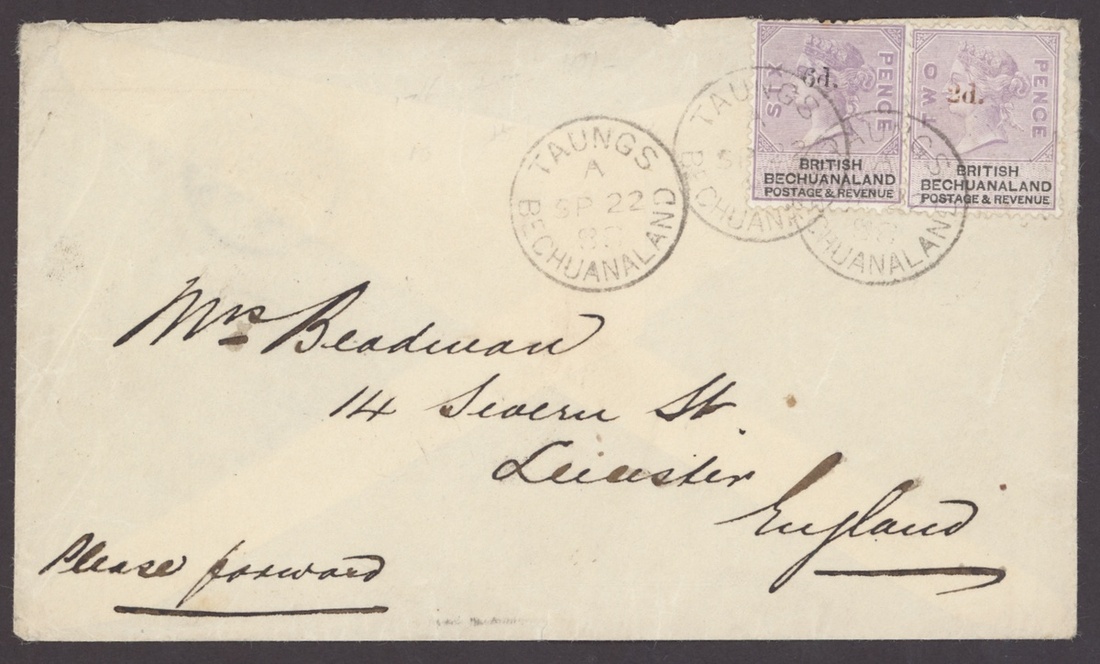 SIX PENCE
6d.
BRITISH
BECHUANALAND
POSTAGE & REVENUE
TWO PENCE
2d.
BRITISH
BECHUANALAND
POSTAGE & REVENUE
TAUNGS
A
SP 22
88
BECHUANALAND
TAUNGS
SP
BECHUANA
TAUNGS
88
CHUANALAND
Mrs Beadman
14 Severn St.
Leicester
England
Please forward